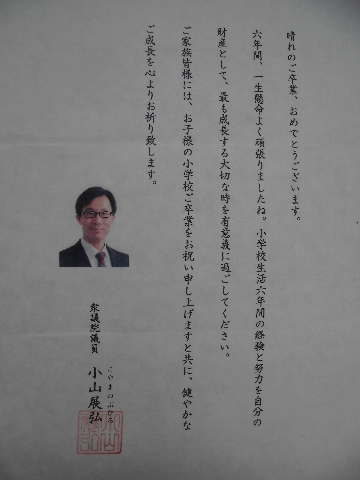 晴れのご卒業、おめでとうございます。
六年間、一生懸命よく頑張りましたね。小学校生活六年間の経験と努力を自分の
財産として、最も成長する大切な時を有意義に過ごしてください。
ご家族皆様には、お子様の小学校ご卒業をお祝い申し上げますと共に、健やかな
ご成長を心よりお祈り致します。
衆議院議員
こやまのぶひろ
小山展弘